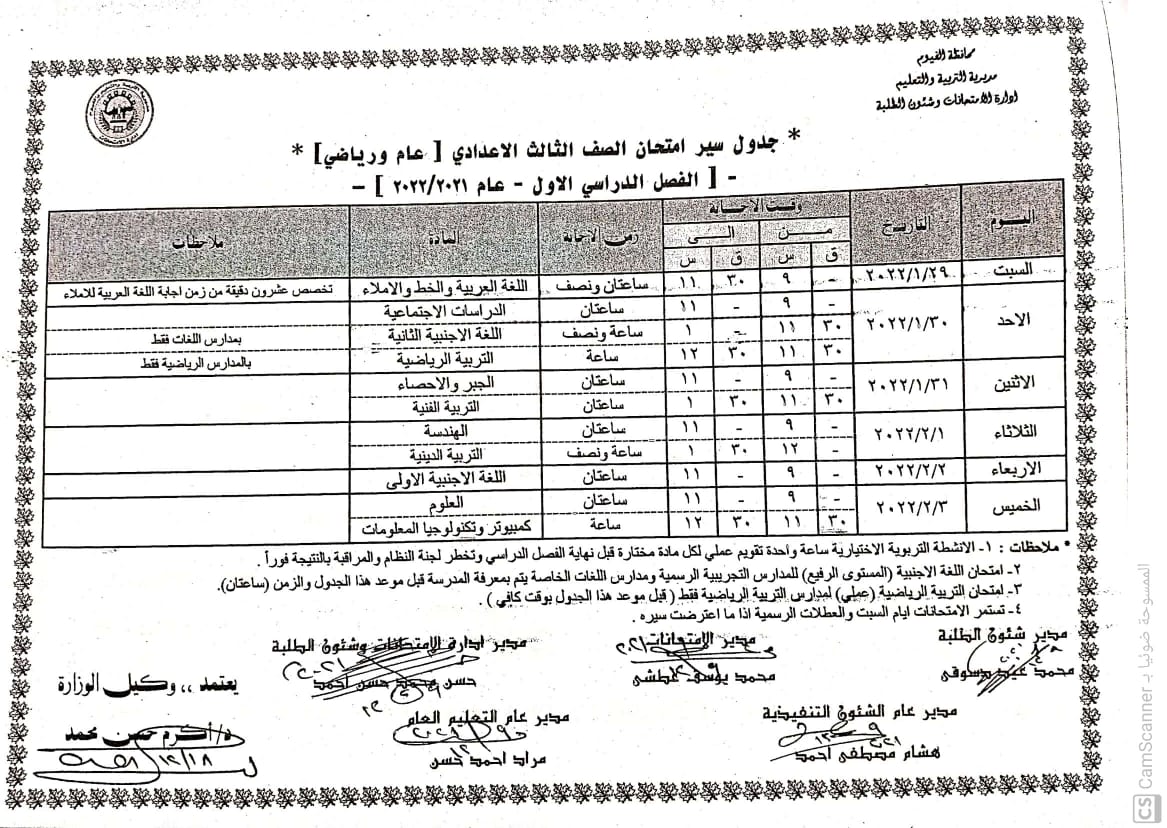 محافظة الفيوم
مديرية التربية والتعليم
ادارة الامتحانات وشئون الطلبة
* جدول سير امتحان الصف الثالث الاعدادي [ عام ورياضي] *
- [ الفصل الدراسي الاول - عام ٢٠٢٢/٢٠٢١ ] -
اليوم التاريخ وقت الاجابة زمن الاجابة المادة ملاحظات
مـن الـى
ق س ق س
السبت ٢٠٢٢/١/٢٩ - ٩ ٣٠ ١١ ساعتان ونصف اللغة العربية والخط والاملاء تخصص عشرون دقيقة من زمن اجابة اللغة العربية للاملاء
الاحد ٢٠٢٢/١/٣٠ - ٩ - ١١ ساعتان الدراسات الاجتماعية
٣٠ ١١ - ١ ساعة ونصف اللغة الاجنبية الثانية بمدارس اللغات فقط
٣٠ ١١ ٣٠ ١٢ ساعة التربية الرياضية بالمدارس الرياضية فقط
الاثنين ٢٠٢٢/١/٣١ - ٩ - ١١ ساعتان الجبر والاحصاء
٣٠ ١١ ٣٠ ١ ساعتان التربية الفنية
الثلاثاء ٢٠٢٢/٢/١ - ٩ - ١١ ساعتان الهندسة
- ١٢ ٣٠ ١ ساعة ونصف التربية الدينية
الاربعاء ٢٠٢٢/٢/٢ - ٩ - ١١ ساعتان اللغة الاجنبية الاولى
الخميس ٢٠٢٢/٢/٣ - ٩ - ١١ ساعتان العلوم
٣٠ ١١ ٣٠ ١٢ ساعة كمبيوتر وتكنولوجيا المعلومات
* ملاحظات : ١- الانشطة التربوية الاختيارية ساعة واحدة تقويم عملي لكل مادة مختارة قبل نهاية الفصل الدراسي وتخطر لجنة النظام والمراقبة بالنتيجة فوراً .
٢- امتحان اللغة الاجنبية (المستوى الرفيع) للمدارس التجريبية الرسمية ومدارس اللغات الخاصة يتم بمعرفة المدرسة قبل موعد هذا الجدول والزمن (ساعتان).
٣- امتحان التربية الرياضية (عملي) لمدارس التربية الرياضية فقط ( قبل موعد هذا الجدول بوقت كافي ) .
٤- تستمر الامتحانات ايام السبت والعطلات الرسمية اذا ما اعترضت سيره .
مدير شئون الطلبة مدير الامتحانات مدير ادارة الامتحانات وشئون الطلبة
محمد عيد دسوقى محمد يوسف عطشى حسن محمد حسن احمد
يعتمد ،، وكيل الوزارة
مدير عام الشئون التنفيذية مدير عام التعليم العام
د/ أكرم حسن محمد
هشام مصطفى احمد مراد احمد حسن
١٢/١٨
الممسوحة ضوئيا بـ CamScanner
CS